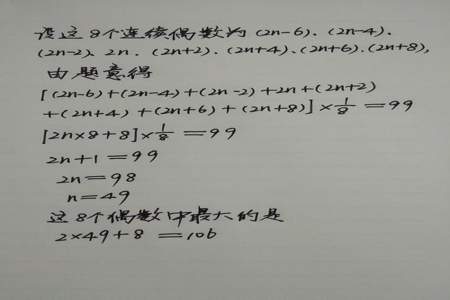 设这8个连续偶数为(2n-6)、(2n-4)、
(2n-2)、2n、(2n+2)、(2n+4)、(2n+6)、(2n+8),
由题意得
[(2n-6)+(2n-4)+(2n-2)+2n+(2n+2)
+(2n+4)+(2n+6)+(2n+8)]×1/8=99
[2n×8+8]×1/8=99
2n+1=99
2n=98
n=49
这8个偶数中最大的是
2×49+8=106